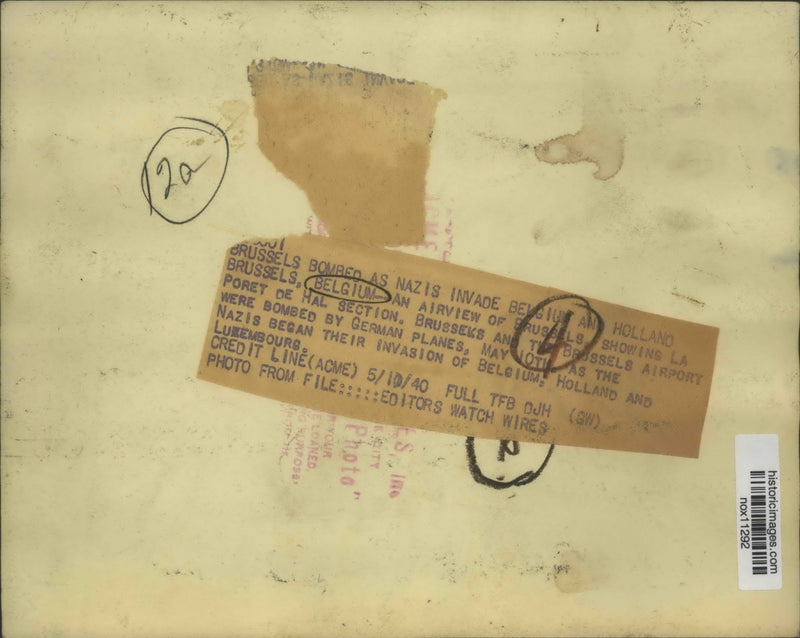 AS NAZIS INVADE
12a
BRUSSELS BOMBED AS NAZIS INVADE BELGIUM AND HOLLAND
BRUSSELS, BELGIUM--AN AIRVIEW OF BRUSSELS, SHOWING LA
PORET DE HAL SECTION. BRUSSEKS AND THE BRUSSELS AIRPORT
WERE BOMBED BY GERMAN PLANES, MAY 10TH, AS THE
NAZIS BEGAN THEIR INVASION OF BELGIUM, HOLLAND AND
LUXEMBOURG.
CREDIT LINE(ACME) 5/10/40 FULL TFB DJH (GW)
PHOTO FROM FILE:::::EDITORS WATCH WIRES
4
Photo"
YOUR
LOANED
PURPOSE,
CITY
Inc
historicimages.com
nox11292